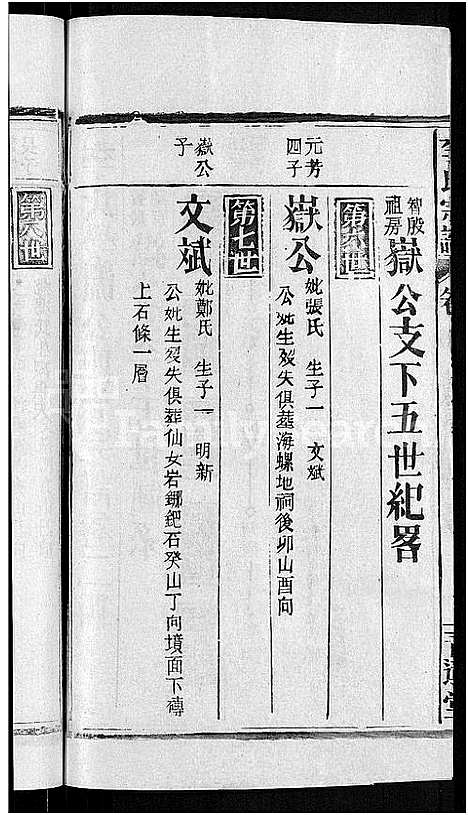 智殷祖房 嶽公支下五世紀畧
第六世
元芳四子
嶽公 妣張氏 生子一 文斌
公妣生歿失俱葬海螺地祠後卯山酉向
第七世
嶽公子
文斌 妣鄭氏 生子一 明新
公妣生歿失俱葬仙女岩鎯鈀石癸山丁向墳面下磚
上石條一層
第八世